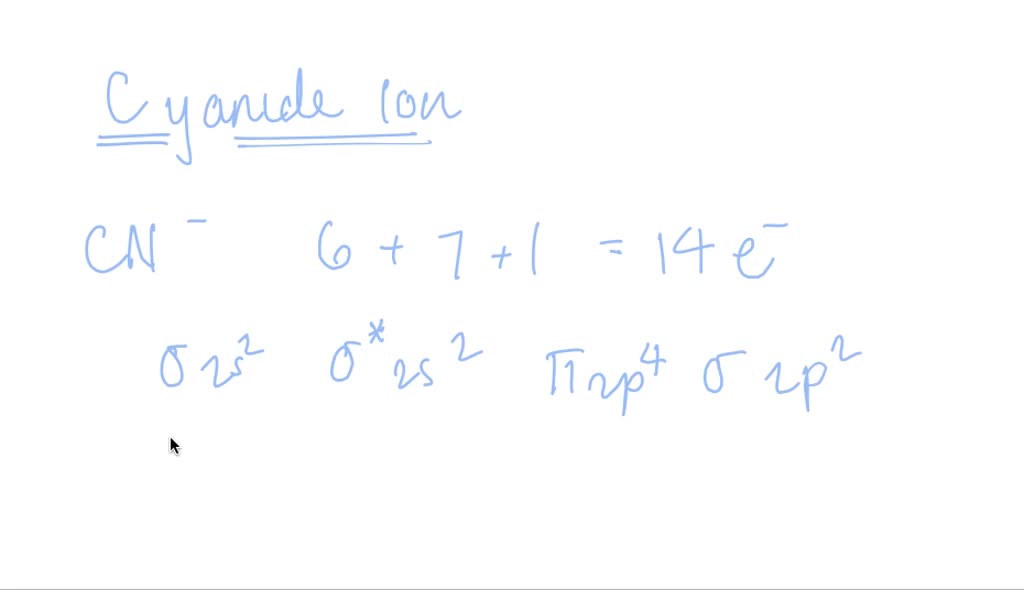 Cyanide Ion
CN⁻ 6 + 7 + 1 = 14 e⁻
σ 2s² σ* 2s² π 2p⁴ σ 2p²